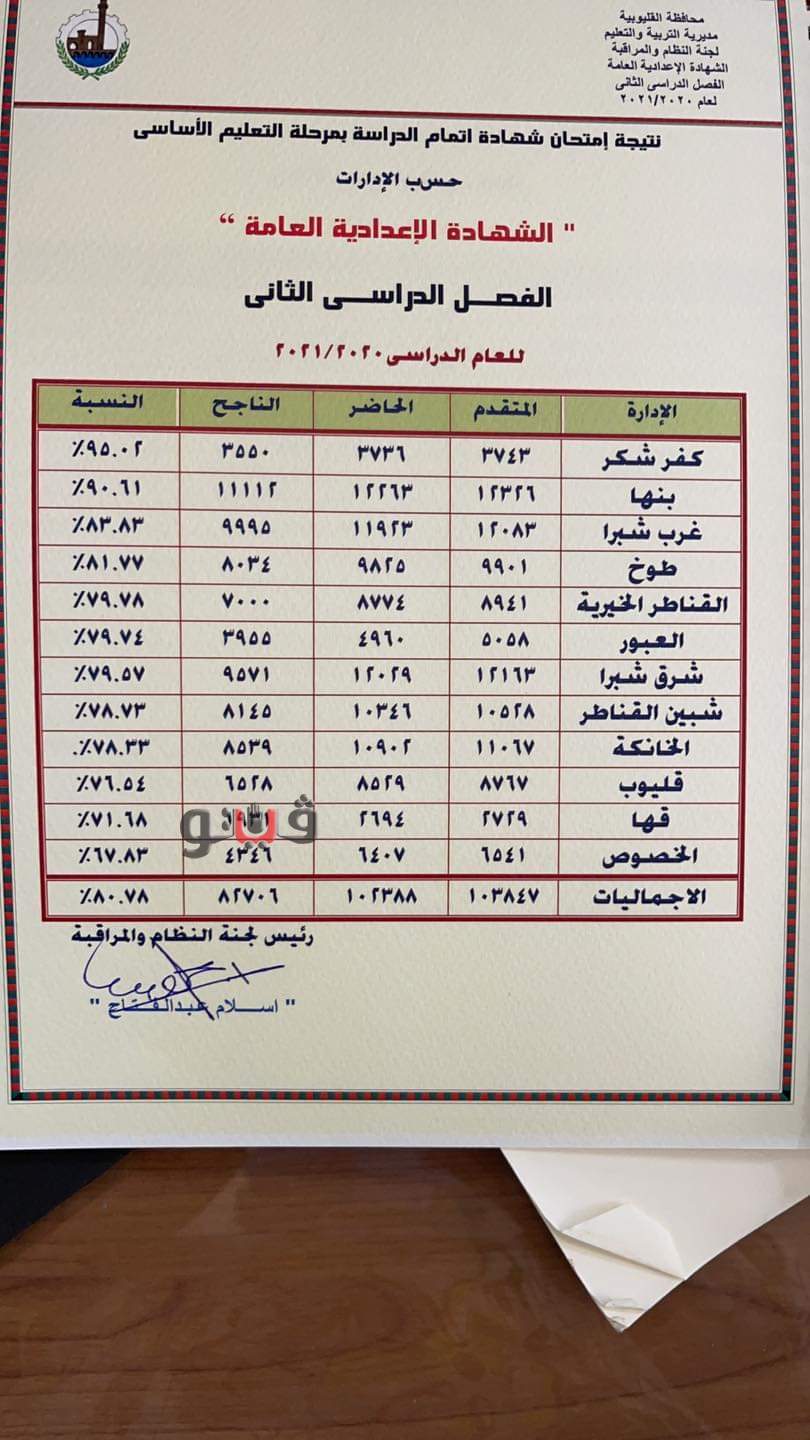 محافظة القليوبية
مديرية التربية والتعليم
لجنة النظام والمراقبة
الشهادة الإعدادية العامة
الفصل الدراسى الثانى
لعام ٢٠٢١/٢٠٢٠
نتيجة إمتحان شهادة اتمام الدراسة بمرحلة التعليم الأساسى
حسب الإدارات
" الشهادة الإعدادية العامة "
الفصل الدراسى الثانى
للعام الدراسى ٢٠٢١/٢٠٢٠
الإدارة المتقدم الحاضر الناجح النسبة
كفر شكر ٣٧٤٣ ٣٧٣٦ ٣٥٥٠ ٩٥.٠٢٪
بنها ١٢٣٢٦ ١٢٢٦٣ ١١١١٢ ٩٠.٦١٪
غرب شبرا ١٢٠٨٣ ١١٩٢٣ ٩٩٩٥ ٨٣.٨٣٪
طوخ ٩٩٠١ ٩٨٢٥ ٨٠٣٤ ٨١.٧٧٪
القناطر الخيرية ٨٩٤١ ٨٧٧٤ ٧٠٠٠ ٧٩.٧٨٪
العبور ٥٠٥٨ ٤٩٦٠ ٣٩٥٥ ٧٩.٧٤٪
شرق شبرا ١٢١٦٣ ١٢٠٢٩ ٩٥٧١ ٧٩.٥٧٪
شبين القناطر ١٠٥٢٨ ١٠٣٤٦ ٨١٤٥ ٧٨.٧٣٪
الخانكة ١١٠٦٧ ١٠٩٠٢ ٨٥٣٩ ٧٨.٣٣٪
قليوب ٨٧٦٧ ٨٥٢٩ ٦٥�٨ ٧٦.٥٤٪
قها ٢٧٢٩ ٢٦٩٤ ١٩٣١ ٧١.٦٨٪
الخصوص ٦٥٤١ ٦٤٠٧ ٤٣٤٦ ٦٧.٨٣٪
الاجماليات ١٠٣٨٤٧ ١٠٢٣٨٨ ٨٢٧٠٦ ٨٠.٧٨٪
ڤيتو
رئيس لجنة النظام والمراقبة
" اسلام عبدالفتاح "